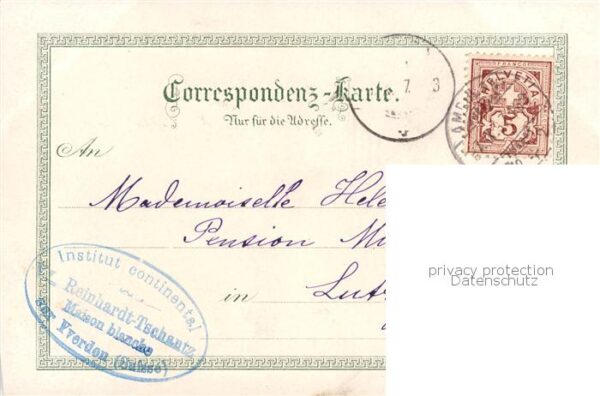 Correspondenz-Karte.
Nur für die Adresse.
7 3
HELVETIA
FRANCO
5
An
Mademoiselle Hele
Pension Mu
in Lut
privacy protection
Datenschutz
Institut continental
Reinhardt-Tschantz
Maison blanche
sur Yverdon (Suisse)